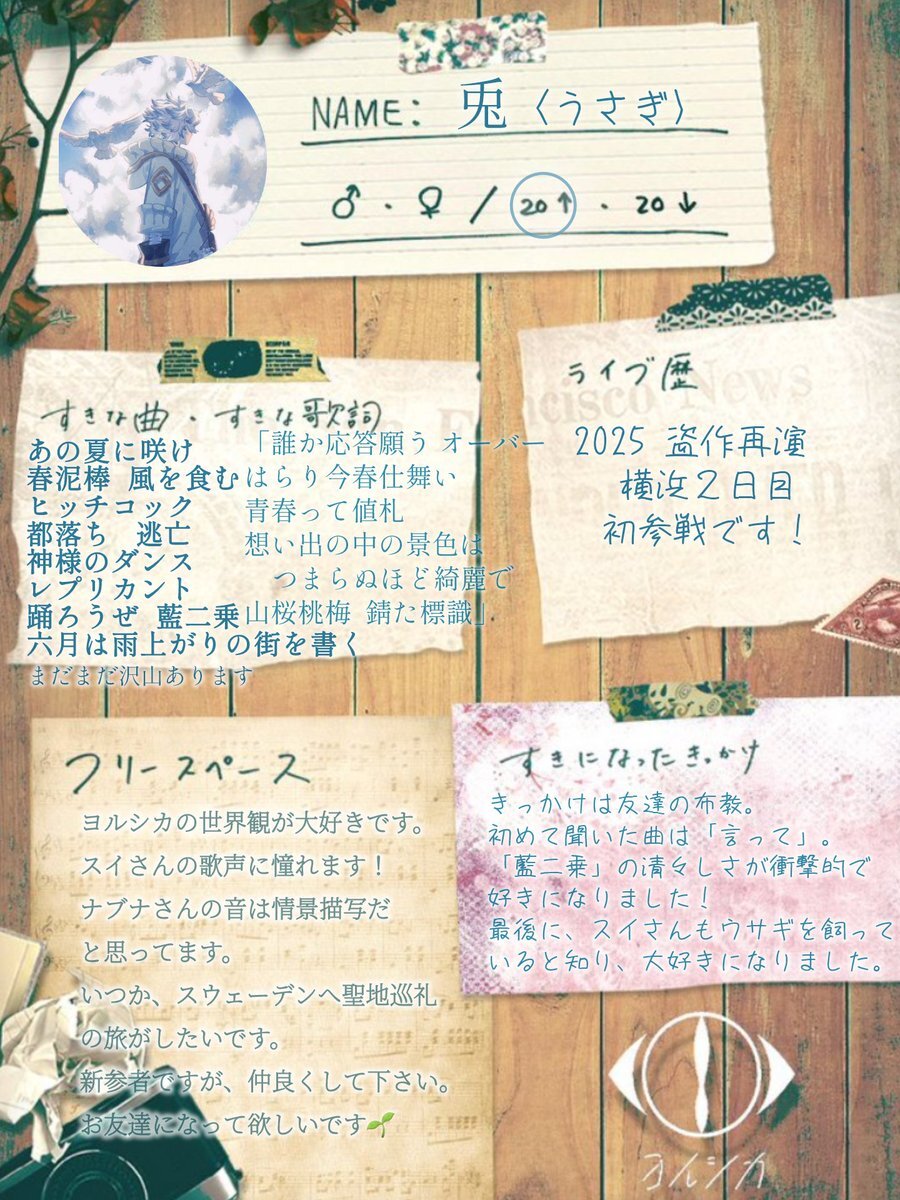 NAME: 兎〈うさぎ〉
♂・♀ / 20↑・20↓
すきな曲・すきな歌詞
あの夏に咲け
春泥棒 風を食む
ヒッチコック
都落ち 逃亡
神様のダンス
レプリカント
踊ろうぜ 藍二乗
六月は雨上がりの街を書く
まだまだ沢山あります
「誰か応答願う オーバー
はらり今春仕舞い
青春って値札
想い出の中の景色は
つまらぬほど綺麗で
山桜桃梅 錆た標識」
ライブ歴
Francisco News
2025 盗作再演
横浜2日目
初参戦です!
フリースペース
ヨルシカの世界観が大好きです。
スイさんの歌声に憧れます!
ナブナさんの音は情景描写だ
と思ってます。
いつか、スウェーデンへ聖地巡礼
の旅がしたいです。
新参者ですが、仲良くして下さい。
お友達になって欲しいです🌱
すきになったきっかけ
きっかけは友達の布教。
初めて聞いた曲は「言って」。
「藍二乗」の清々しさが衝撃的で
好きになりました!
最後に、スイさんもウサギを飼って
いると知り、大好きになりました。
ヨルシカ